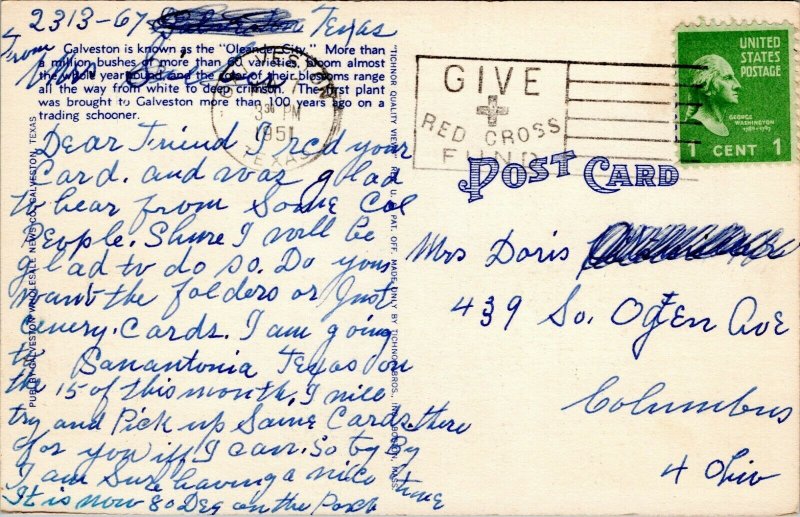 2313-67 Texas
From Mrs
Galveston is known as the "Oleander City." More than
a million bushes of more than 60 varieties bloom almost
the whole year round and the of their blossoms range
all the way from white to deep crimson. The first plant
was brought to Galveston more than 100 years ago on a
trading schooner.
3 30 PM
1951
TEXAS
GIVE
RED CROSS
FUND
UNITED
STATES
POSTAGE
GEORGE
WASHINGTON
1 CENT 1
POST CARD
Dear Friend I rcd your
Card. and was glad
to hear from Some Col
People. Shure I will be
glad to do so. Do you
want the folders or Just
cenery. Cards. I am going
to Sanantonia Texas on
the 15 of this month, I will
try and Pick up Some Cards there
for you if I can. So by By
I am Sure having a nice time
It is now 80 Deg on the Porch
Mrs Doris
439 So. Ogden Ave
Columbus
4 Ohio
PUB. BY GALVESTON WHOLESALE NEWS CO., GALVESTON, TEXAS
"TICHNOR QUALITY VIEWS" REG. U. S. PAT. OFF. MADE ONLY BY TICHNOR BROS., INC., BOSTON, MASS.